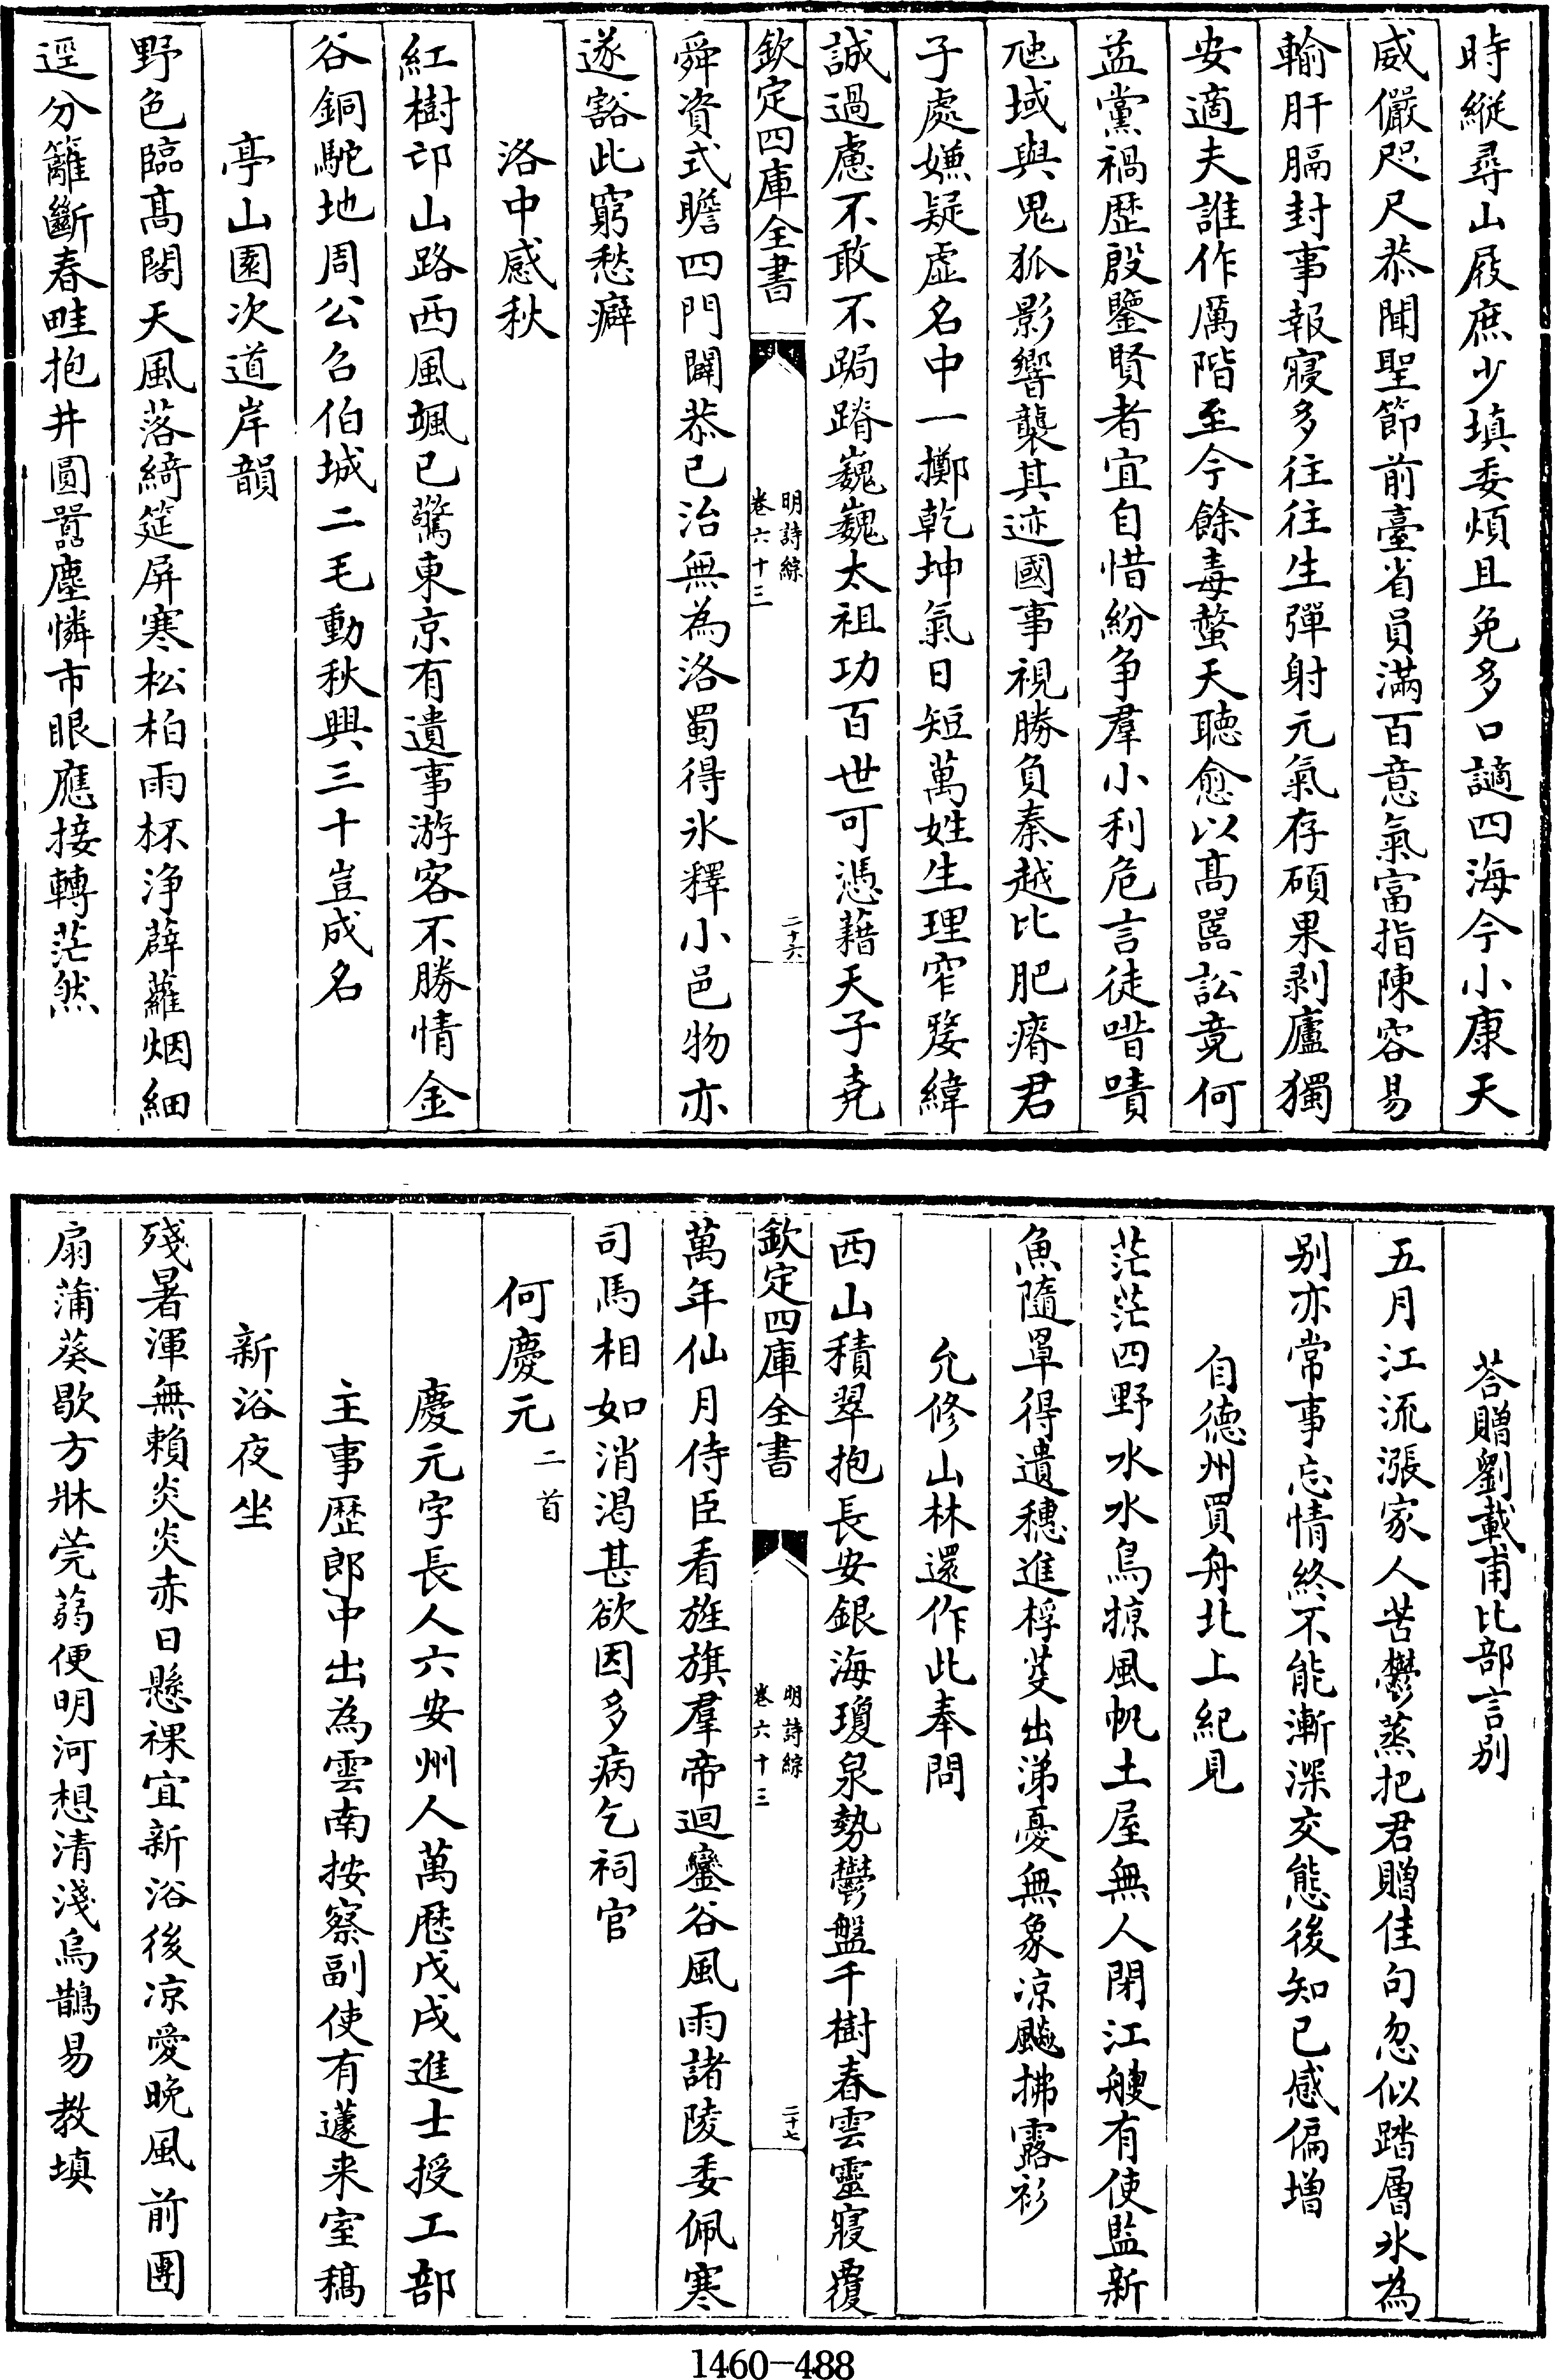 時縱尋山屐庶少填委煩且免多口讁四海今小康天
威儼咫尺恭聞聖節前臺省員滿百意氣富指陳容易
輸肝膈封事報寢多往往生彈射元氣存碩果剥廬獨
安適夫誰作厲階至今餘毒螫天聽愈以髙嚚訟竟何
益黨禍歴殷鑒賢者宜自惜紛争羣小利危言徒唶嘖
虺域與鬼狐影響襲其迹國事視勝負秦越比肥瘠君
子處嫌疑虛名中一擲乾坤氣日短萬姓生理窄嫠緯
誠過慮不敢不跼蹐巍巍太祖功百世可憑藉天子堯
欽定四庫全書
明詩綜
卷六十三
二十六
舜資式瞻四門闢恭已治無為洛蜀得氷釋小邑物亦
遂豁此窮愁癖
洛中感秋
紅樹卭山路西風颯已驚東京有遺事游客不勝情金
谷銅駝地周公召伯城二毛動秋興三十豈成名
亭山園次道岸韻
野色臨髙閣天風落綺筵屏寒松柏雨杯浄薜蘿烟細
逕分籬斷春畦抱井圓囂塵憐市眼應接轉茫然
荅贈劉載甫比部言别
五月江流漲家人苦鬱蒸把君贈佳句忽似踏層氷為
别亦常事忘情終不能漸深交態後知已感偏增
自德州買舟北上紀見
茫茫四野水水鳥掠風帆土屋無人閉江艘有使監新
魚隨罩得遺穗進桴芟出涕憂無象凉飈拂露衫
允修山林還作此奉問
西山積翠抱長安銀海瓊泉勢鬱盤千樹春雲靈寢覆
欽定四庫全書
明詩綜
卷六十三
二十七
萬年仙月侍臣看旌旗羣帝迴鑾谷風雨諸陵委佩寒
司馬相如消渴甚欲因多病乞祠官
何慶元二首
慶元字長人六安州人萬厯戊戌進士授工部
主事歴郎中出為雲南按察副使有蘧来室稿
新浴夜坐
殘暑渾無賴炎炎赤日懸裸宜新浴後凉愛晩風前團
扇蒲葵歇方牀莞蒻便明河想清淺烏鵲易教填
1460-488